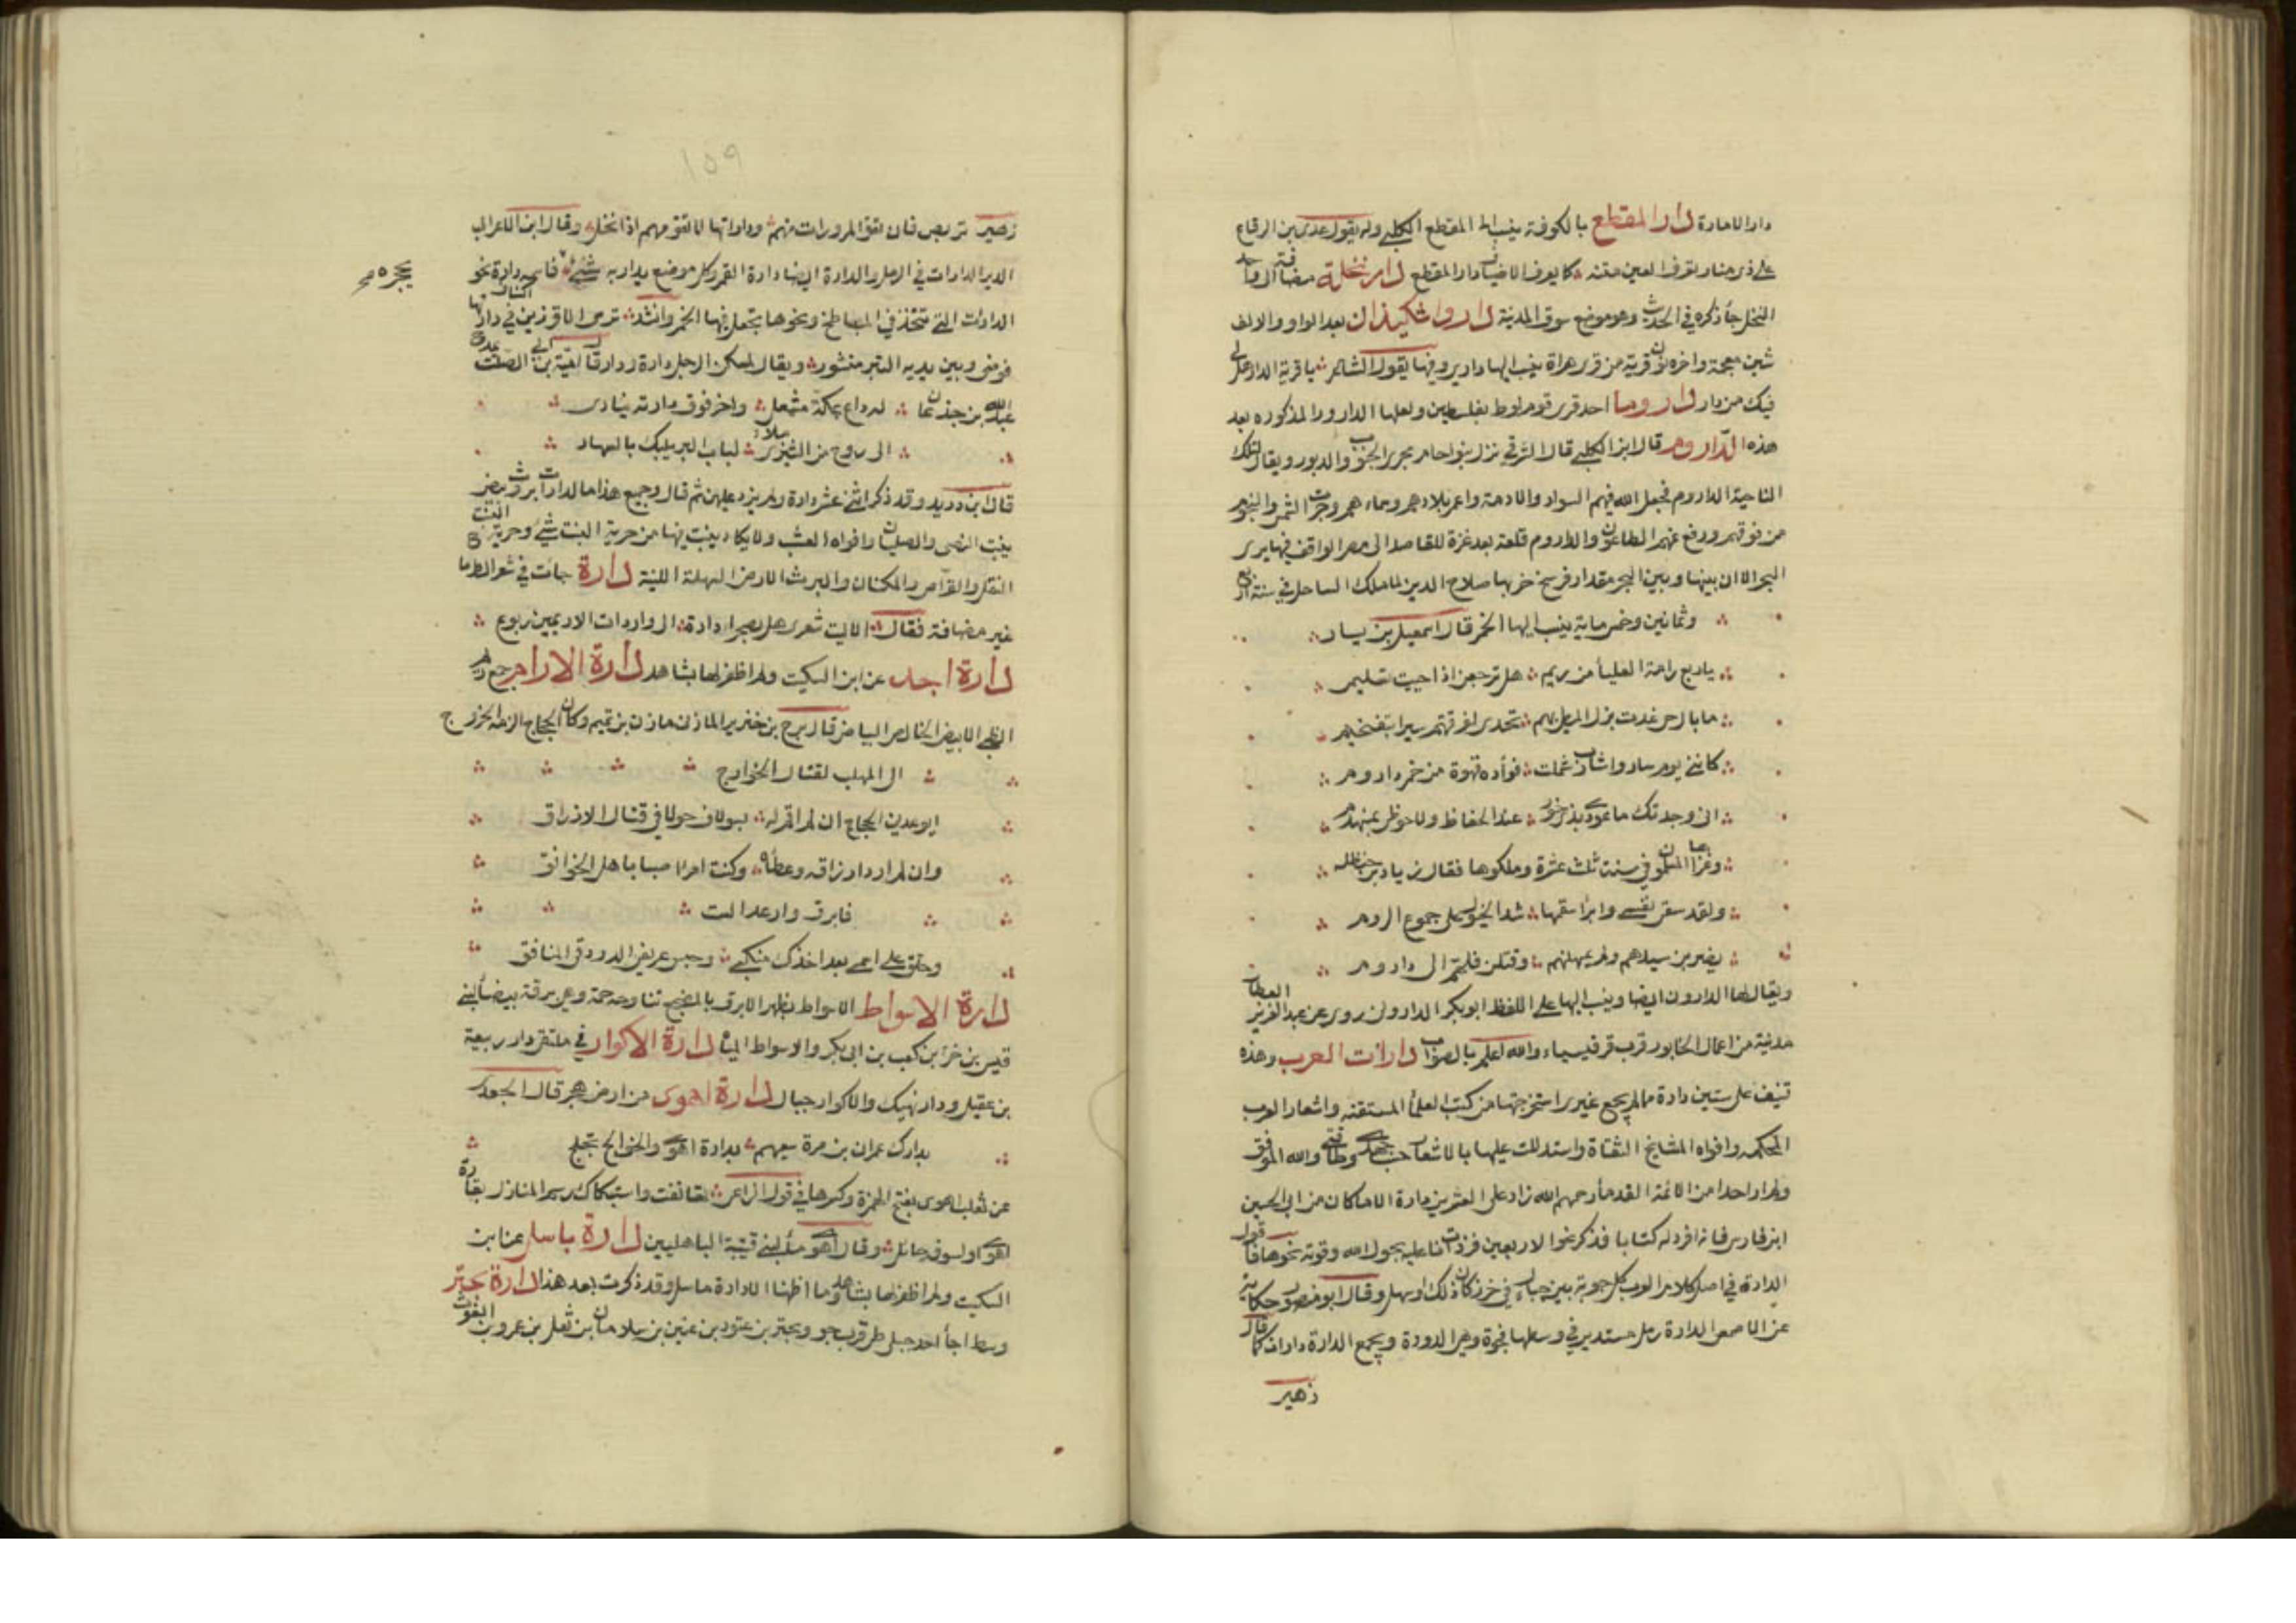 دارا الامارة دار المقطع بالكوفة ينسب الى المقطع الكلبي وله يقول عدي بن الرقاع
على ذي منار تعرف العين متنه كما يعرف الاضياف دار المقطع دار نخلة مضافة الى واحد
النخل جاء ذكره في الحديث وهو موضع سوق المدينة دار واشكيذان بعد الواو والالف
شين معجمة واخره نون قرية من قرى هراة ينسب اليها داريي وفيها يقول الشاعر يا قرية الدار هل لي
فيك من دار داروما احد قرى قوم لوط بفلسطين ولعلها الداروم المذكوره بعد
هذه الداروم قال ابن الكلبي قال الشرقي نزل بنو حام مجرى الجنوب والدبور ويقال لتلك
الناحية الداروم فجعل الله فيهم السواد والادمة واعمر بلادهم وسماءهم وجرت الشمس والنجوم
من فوقهم ورفع عنهم الطاعون والداروم قلعة بعد غزة للقاصد الى مصر الواقف فيها يرى
البحر الا ان بينها وبين البحر مقدار فرسخ خربها صلاح الدين لما ملك الساحل في سنة اربع
وثمانين وخمس ماية ينسب اليها الخمر قال اسمعيل بن يسار
يا ربع رامة العلياء من ريم هل ترجعن اذا حييت تسليمي
ما بال حي غدت بزل المطي بهم تحدى لفرقتهم سيرا بتفخيم
كانني يوم ساروا شارب غملت فواده قهوة من خمر داروم
اني وجدتك ما عودي بذي خور عند الحفاظ ولا حوضي بمهدوم
وغزاها المسلمون في سنة ثلث عشرة وملكوها فقال زياد بن حنظله
ولقد سقى نفسي وابرا سقمها شد الخيول على جموع الروم
يضربن سيدهم ولم يمهلنهم وقتلن فلهم الى داروم
ويقال لها الدارون ايضا وينسب اليها على اللفظ ابو بكر الداروني روى عن عبد العزيز العطار
مدنية من اعمال الخابور قرب قرقيسياء والله اعلم بالصواب دارات العرب وهذه
تنيف على ستين دارة مما لم يجمع غيري استخرجتها من كتب العلماء المستقنه واشعار العرب
المحكمه وافواه المشايخ الثقاة واستدللت عليها بالاشعار حسب جهدي وطاقتي والله الموفق
ولم ار احدا من الائمة القدماء رحمهم الله زاد على العشرين دارة الا ما كان من ابي الحسين
ابن فارس فانه افرد له كتابا فذكر نحوا لاربعين فزدت انا عليه بحول الله وقوته نحوها فاقول
الدارة في اصل كلام العرب كل جوبة بين جبال في حزن كان ذلك او سهل وقال ابو منصور حكاية
عن الاصمعي الدارة رمل مستدير في وسطها فجوة وهي الدورة ويجمع الدارة دارات كما قال
زهير
١٥٩
زهير تربص فان تقو المرورات منهم وداراتها لا تقو منهم اذا نخل وقال ابن الاعرابي
الدير الدارات في الرمل والدارة ايضا دارة القمر وكل موضع يدار به شئ فاسمه دارة نحو
الدارات التي تتخذ في المباطخ ونحوها يجعل فيها الخمر وانشد ترى الاوزين في اكناف دارتها
فوضى وبين يديه التبر منثور ويقال لمسكن الرجل دارة ودار قال امية بن ابي الصلت يمدح
عبد الله بن جذعان له داع بمكة مشمعل واخر فوق دارته ينادي
الى ردح من الشيزى ملاء لباب البر يلبك بالسهاد
قال ابن دريد وقد ذكر اثنى عشر دارة ولم يزد عليهن ثم قال وجميع هذا ما لدارات بروث بيض
ينبت النصي والصليان وافواه العشب ولا يكاد ينبت فيها من حرية النبت شئ وحرية النبت
النفل والقراص والمكنان والبرث الارض السهلة اللينة دارة جات في شعر الطرماح
غير مضافة فقال الا ليت شعري هل بصحرا دارة الى واردات الاريمين ربوع
دارة اجد عن ابن السكيت ولم اظفر لها بشاهد دارة الارام جمع ريم
الظبي الابيض الخالص البياض قال برج بن خنزير المازني مازن بن تميم وكان الحجاج الزمه الخروج
الى المهلب لقتال الخوارج
ايوعدني الحجاج ان لم اقم له بسولاف حولا في قتال الازراق
وان لم ارد ارزاقه وعطاه وكنت امرا صبا باهل الخوانق
فابرق وارعد الت
وحلق على اسمي بعد اخذك منكبي وحبس عريفي الدردقي المنافق
دارة الاسواط الاسواط بظهر الابرق بالمضجع تناوحه حمة وهي برقة بيضاء لبني
قيس بن جزء بن كعب بن ابي بكر والاسواط المياه دارة الاكوار في ملتقى دار ربيعة
بن عقيل ودار نهيك والاكوار جبال دارة اهوى من ارض هجر قال الجعدي
بدارك عمران بن مرة سعيهم بدارة اهوى والخوالج تخلج
عن ثعلب اهوى بفتح الهمزة وكسرها في قول الراعي تهانفت واستبكاك رسم المنازل بقارة
اهوى او لسوفي حائل وقال اهوى ماء لبني قتيبة الباهليين دارة باسل عن ابن
السكيت ولم اظفر لها بشاهد وما اظنها الا دارة ماسل وقد ذكرت بعد هذا دارة بحتر
وسط اجأ احد جبلي طي قرب جو وبحتر بن عتود بن عنين بن سلامان بن ثعل بن عمرو بن الغوث